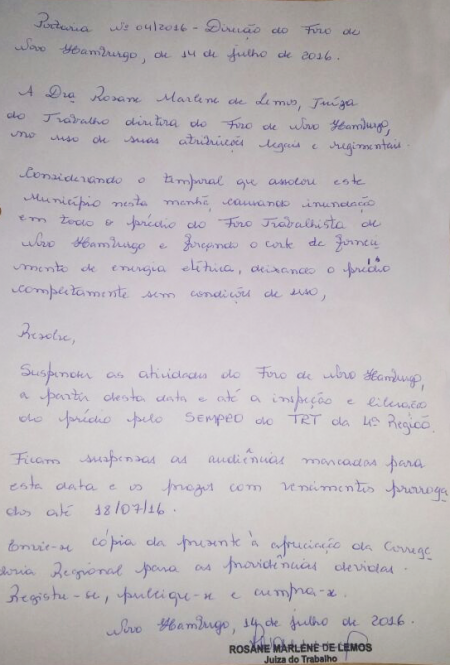 Portaria Nº 04/2016 - Direção do Foro de
Novo Hamburgo, de 14 de julho de 2016.
A Dra Rosane Marlene de Lemos, Juíza
do Trabalho diretora do Foro de Novo Hamburgo,
no uso de suas atribuições legais e regimentais.
Considerando o temporal que assolou este
Município nesta manhã, causando inundação
em todo o prédio do Foro Trabalhista de
Novo Hamburgo e forçando o corte de forneci
mento de energia elétrica, deixando o prédio
completamente sem condições de uso,
Resolve,
Suspender as atividades do Foro de Novo Hamburgo,
a partir desta data e até a inspeção e liberação
do prédio pelo SEMPRO do TRT da 4ª Região.
Ficam suspensas as audiências marcadas para
esta data e os prazos com vencimentos prorroga
dos até 18/07/16.
Envie-se cópia da presente à apreciação da Correge
doria Regional para as providências devidas.
Registre-se, publique-se e cumpra-se.
Novo Hamburgo, 14 de julho de 2016.
ROSANE MARLENE DE LEMOS
Juíza do Trabalho